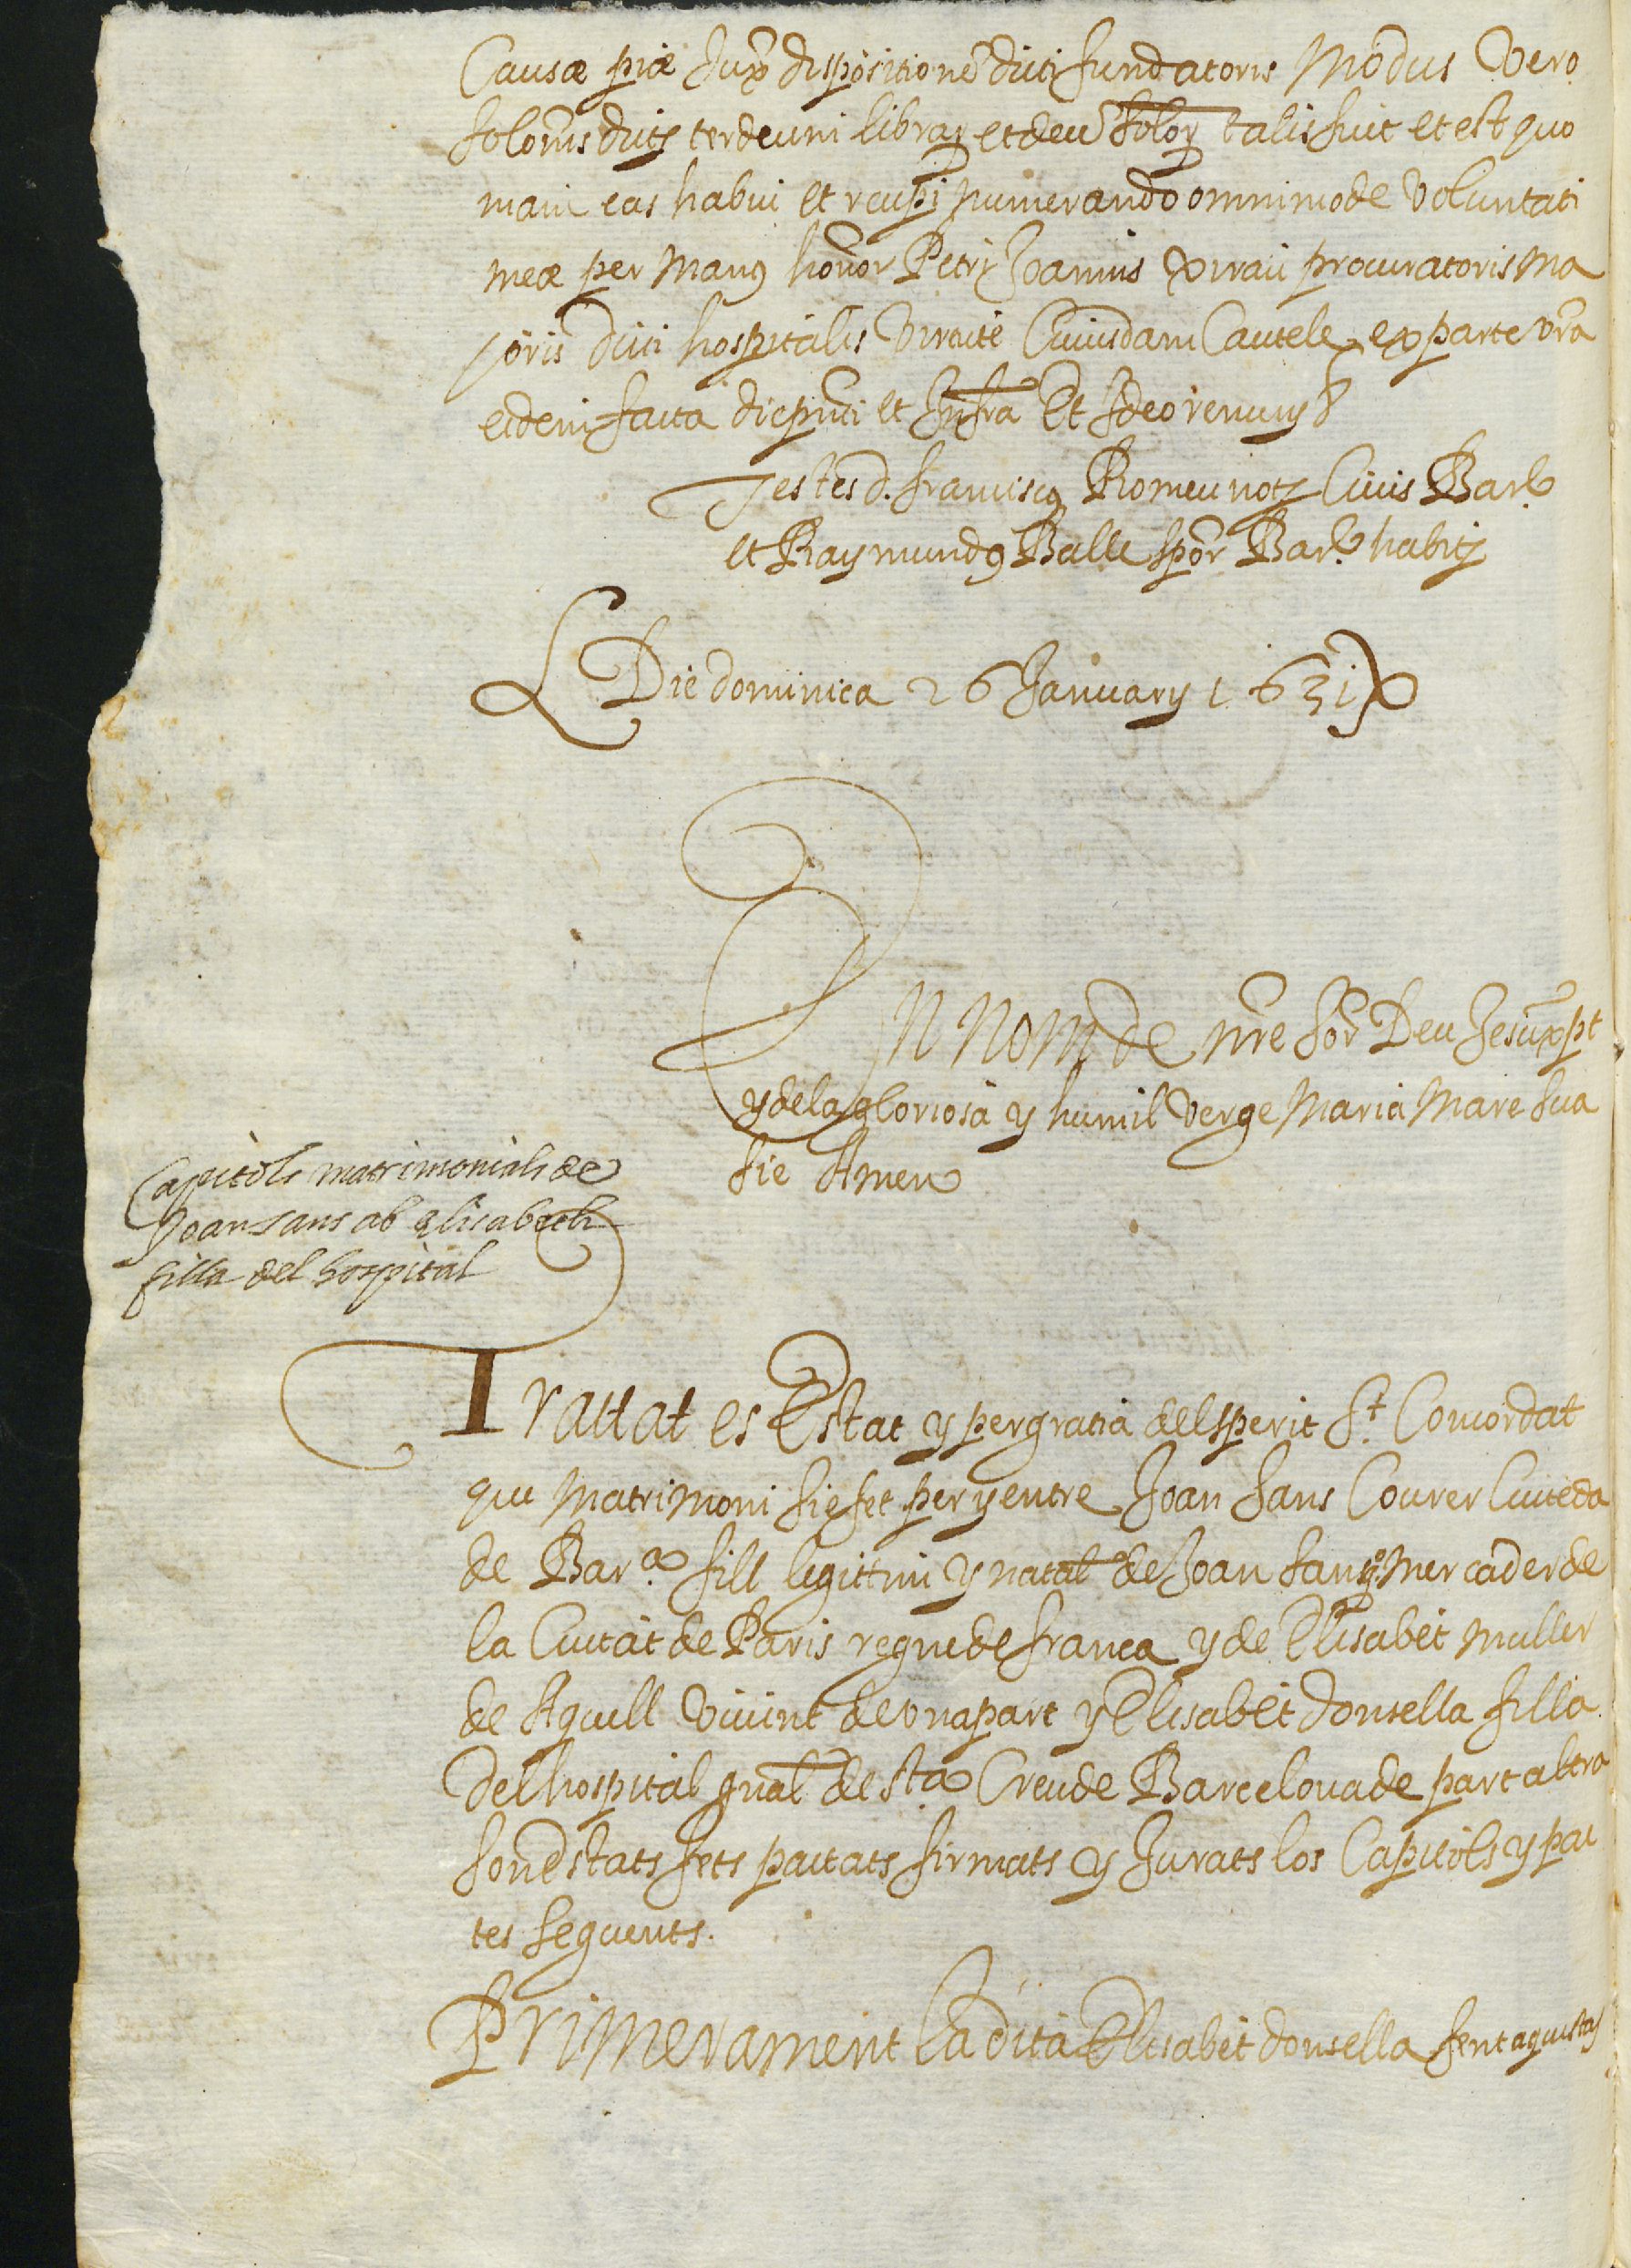 Causæ piæ Juxª dispositionẽ dicti fundatoris Modus Vero
solõnis dictȝ terdecim librarȝ et decẽ solorȝ talis fuit et est quo
niam eas habui et recepi numerando omnimode Voluntati
meæ per manȝ honor Petri Joannis Xirau procuratoris ma
joris dicti hospitalis Virtute Cuiusdam Cautele ex parte vrã
eidem facta die pñti et Infra Et Ideo renunȝ &
Testes d. franciscȝ Romeu notȝ Ciuis Barᵉ
et Raymundȝ Balle spor Barᵉ habitȝ
Die dominica 26 January 1631
En Nom de nrẽ Sor Deu Jesuxpt
y dela gloriosa y humil Verge Maria Mare sua
sie Amen
Capitols matrimonials de
Joan sans ab Elisabeth
filla del hospital
Trattat es Estat y per gratia del sperit St. Concordat
que Matrimoni sie fet per y entre Joan Sans Courer Ciuteda
de Barª fill legittim y natal de Joan Sans qº Mercader de
la Ciutat de Paris regne de franca y de Elisabet muller
de Aquell Viuint de vna part y Elisabet donsella filla
del hospital gñal de sta Creu de Barcelona de part altra
son Estats fets pactats firmats y Jurats los Capitols y pac
tes seguents.
Primerament la dita Elisabet donsella fent aquestas